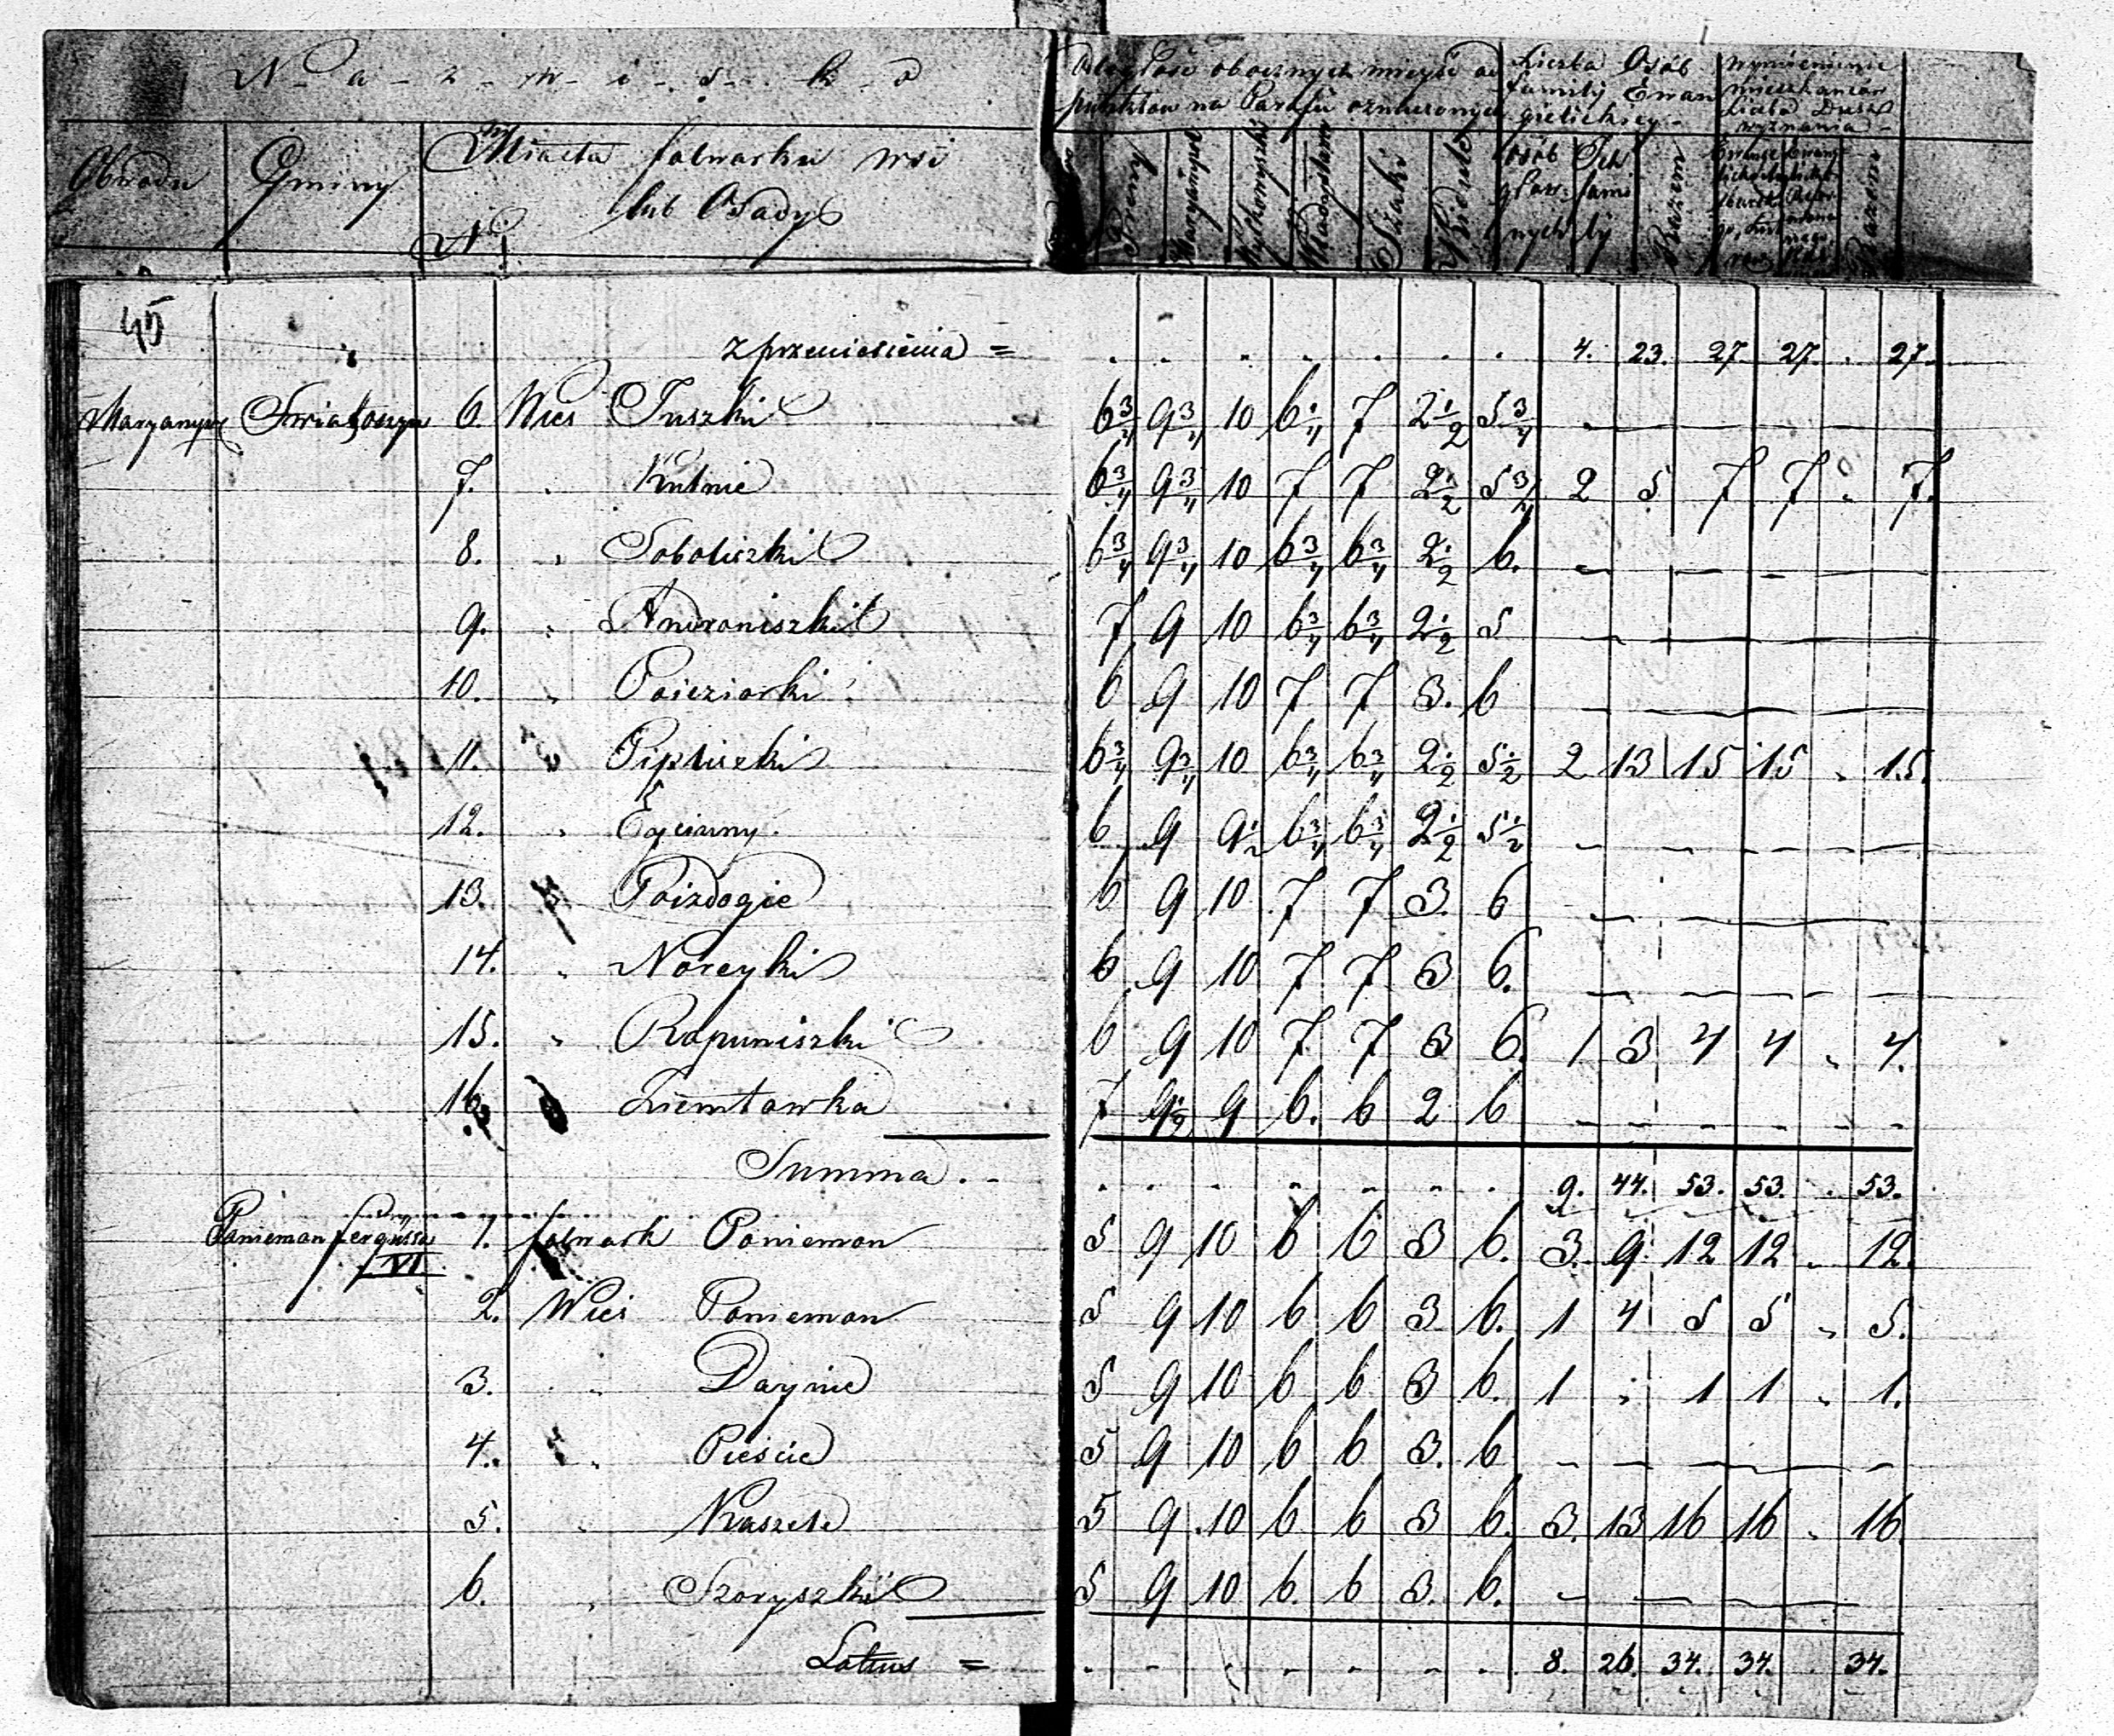 N a z w i s k o
Obwodu Gminy Miasta folwarku wsi
lub Osady
Nr
odległość obocznych mieysc od
punktów na Parafii oznaczonych
Preny Maryampol Wyłkowyszki Władysławów Szaki
Liczba Osób
familij Ewan
gielickiey
osób głow nych Ich fami ly Razem
wymienienie
mieszkanców
Liczba Dusz
wyznania
Razem
45
z przeniesienia = . . . . . . . 4. 23. 27 27. . 27.
Maryamp Swiatoszyn 6. Wies Juszki 6 3/4 9 3/4 10 6 1/4 7 2 1/2 5 3/4 —
7. " Kutnie 6 3/4 9 3/4 10 7 7 2 1/2 5 3/4 2 5 7 7 " 7.
8. " Soboliszki 6 3/4 9 3/4 10 6 3/4 6 3/4 2 1/2 6. — — — —
9. " Androniszki 7 9 10 6 3/4 6 3/4 2 1/2 5 — —
10. " Poieziorki 6 9 10 7 7 3. 6 — —
11. " Pipliszki 6 3/4 9 3/4 10 6 3/4 6 3/4 2 1/2 5 1/2 2 13 15 15 " 15.
12. " 6 9 9 1/2 6 3/4 6 3/4 2 1/2 5 1/2 — — — — — —
13. " Poizdogie 6 9 10 7 7 3. 6 — —
14. " Noreyki 6 9 10 7 7 3 6. — — — —
15. " Rapuniszki 6 9 10 7 7 3 6. 1 3 4 4 " 4.
16. " Ziemtowka 7 9 1/2 9 6. 6 2 6 — — — — — —
Summa . . . . . . . . . 9. 44. 53. 53. . 53.
Panieman fergissa VI 1. folwark Panieman 5 9 10 6 6 3 6. 3. 9 12 12 " 12.
2. Wies Panieman 5 9 10 6 6 3 6. 1 4 5 5 " 5.
3. " Daynie 5 9 10 6 6 3 6. 1 " 1 1 " 1.
4. " Pieście 5 9 10 6 6 3. 6 — — — —
5. " Kaszele 5 9 10 6 6 3 6. 3. 13 16 16 " 16
6. " Szoryszki 5 9 10 6. 6 3. 6. — — —
Latus = . . . . . . . 8. 26. 34. 34. . 34.